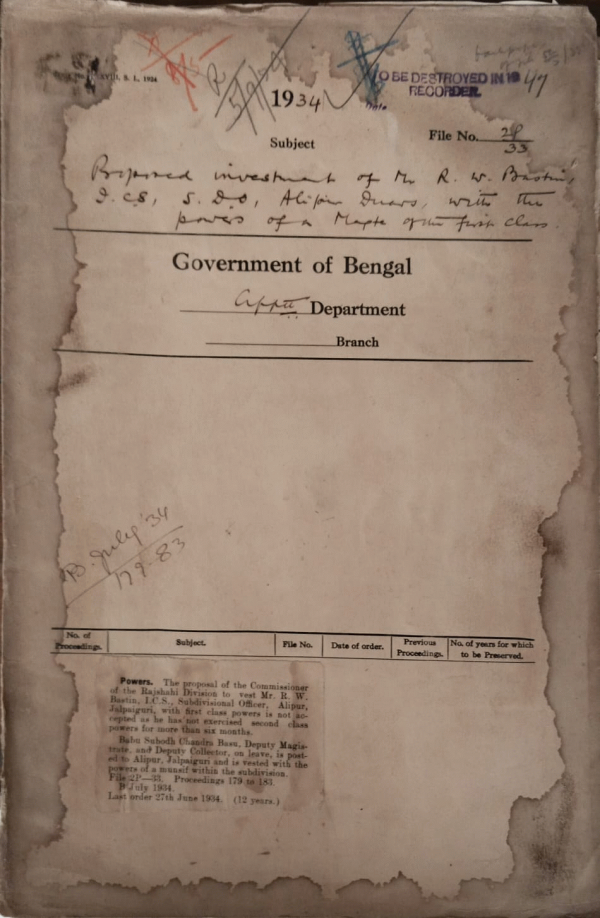 XVIII. S. L. 1934
TO BE DESTROYED IN 19 47
RECORDER.
1934
File No. 2P
33
Subject
Proposed investment of Mr R. W. Bastin,
I.C.S, S.D.O, Alipur Duars, with the
powers of a Magte of the first class.
Government of Bengal
Apptt Department
Branch
B. July '34
179-83
No. of Proceedings. Subject. File No. Date of order. Previous Proceedings. No. of years for which to be Preserved.
Powers. The proposal of the Commissioner
of the Rajshahi Division to vest Mr. R. W.
Bastin, I.C.S., Subdivisional Officer, Alipur,
Jalpaiguri, with first class powers is not ac-
cepted as he has not exercised second class
powers for more than six months.
Babu Subodh Chandra Basu, Deputy Magis-
trate, and Deputy Collector, on leave, is post-
ed to Alipur, Jalpaiguri and is vested with the
powers of a munsif within the subdivision.
File 2P—33. Proceedings 179 to 183.
B July 1934.
Last order 27th June 1934. (12 years.)